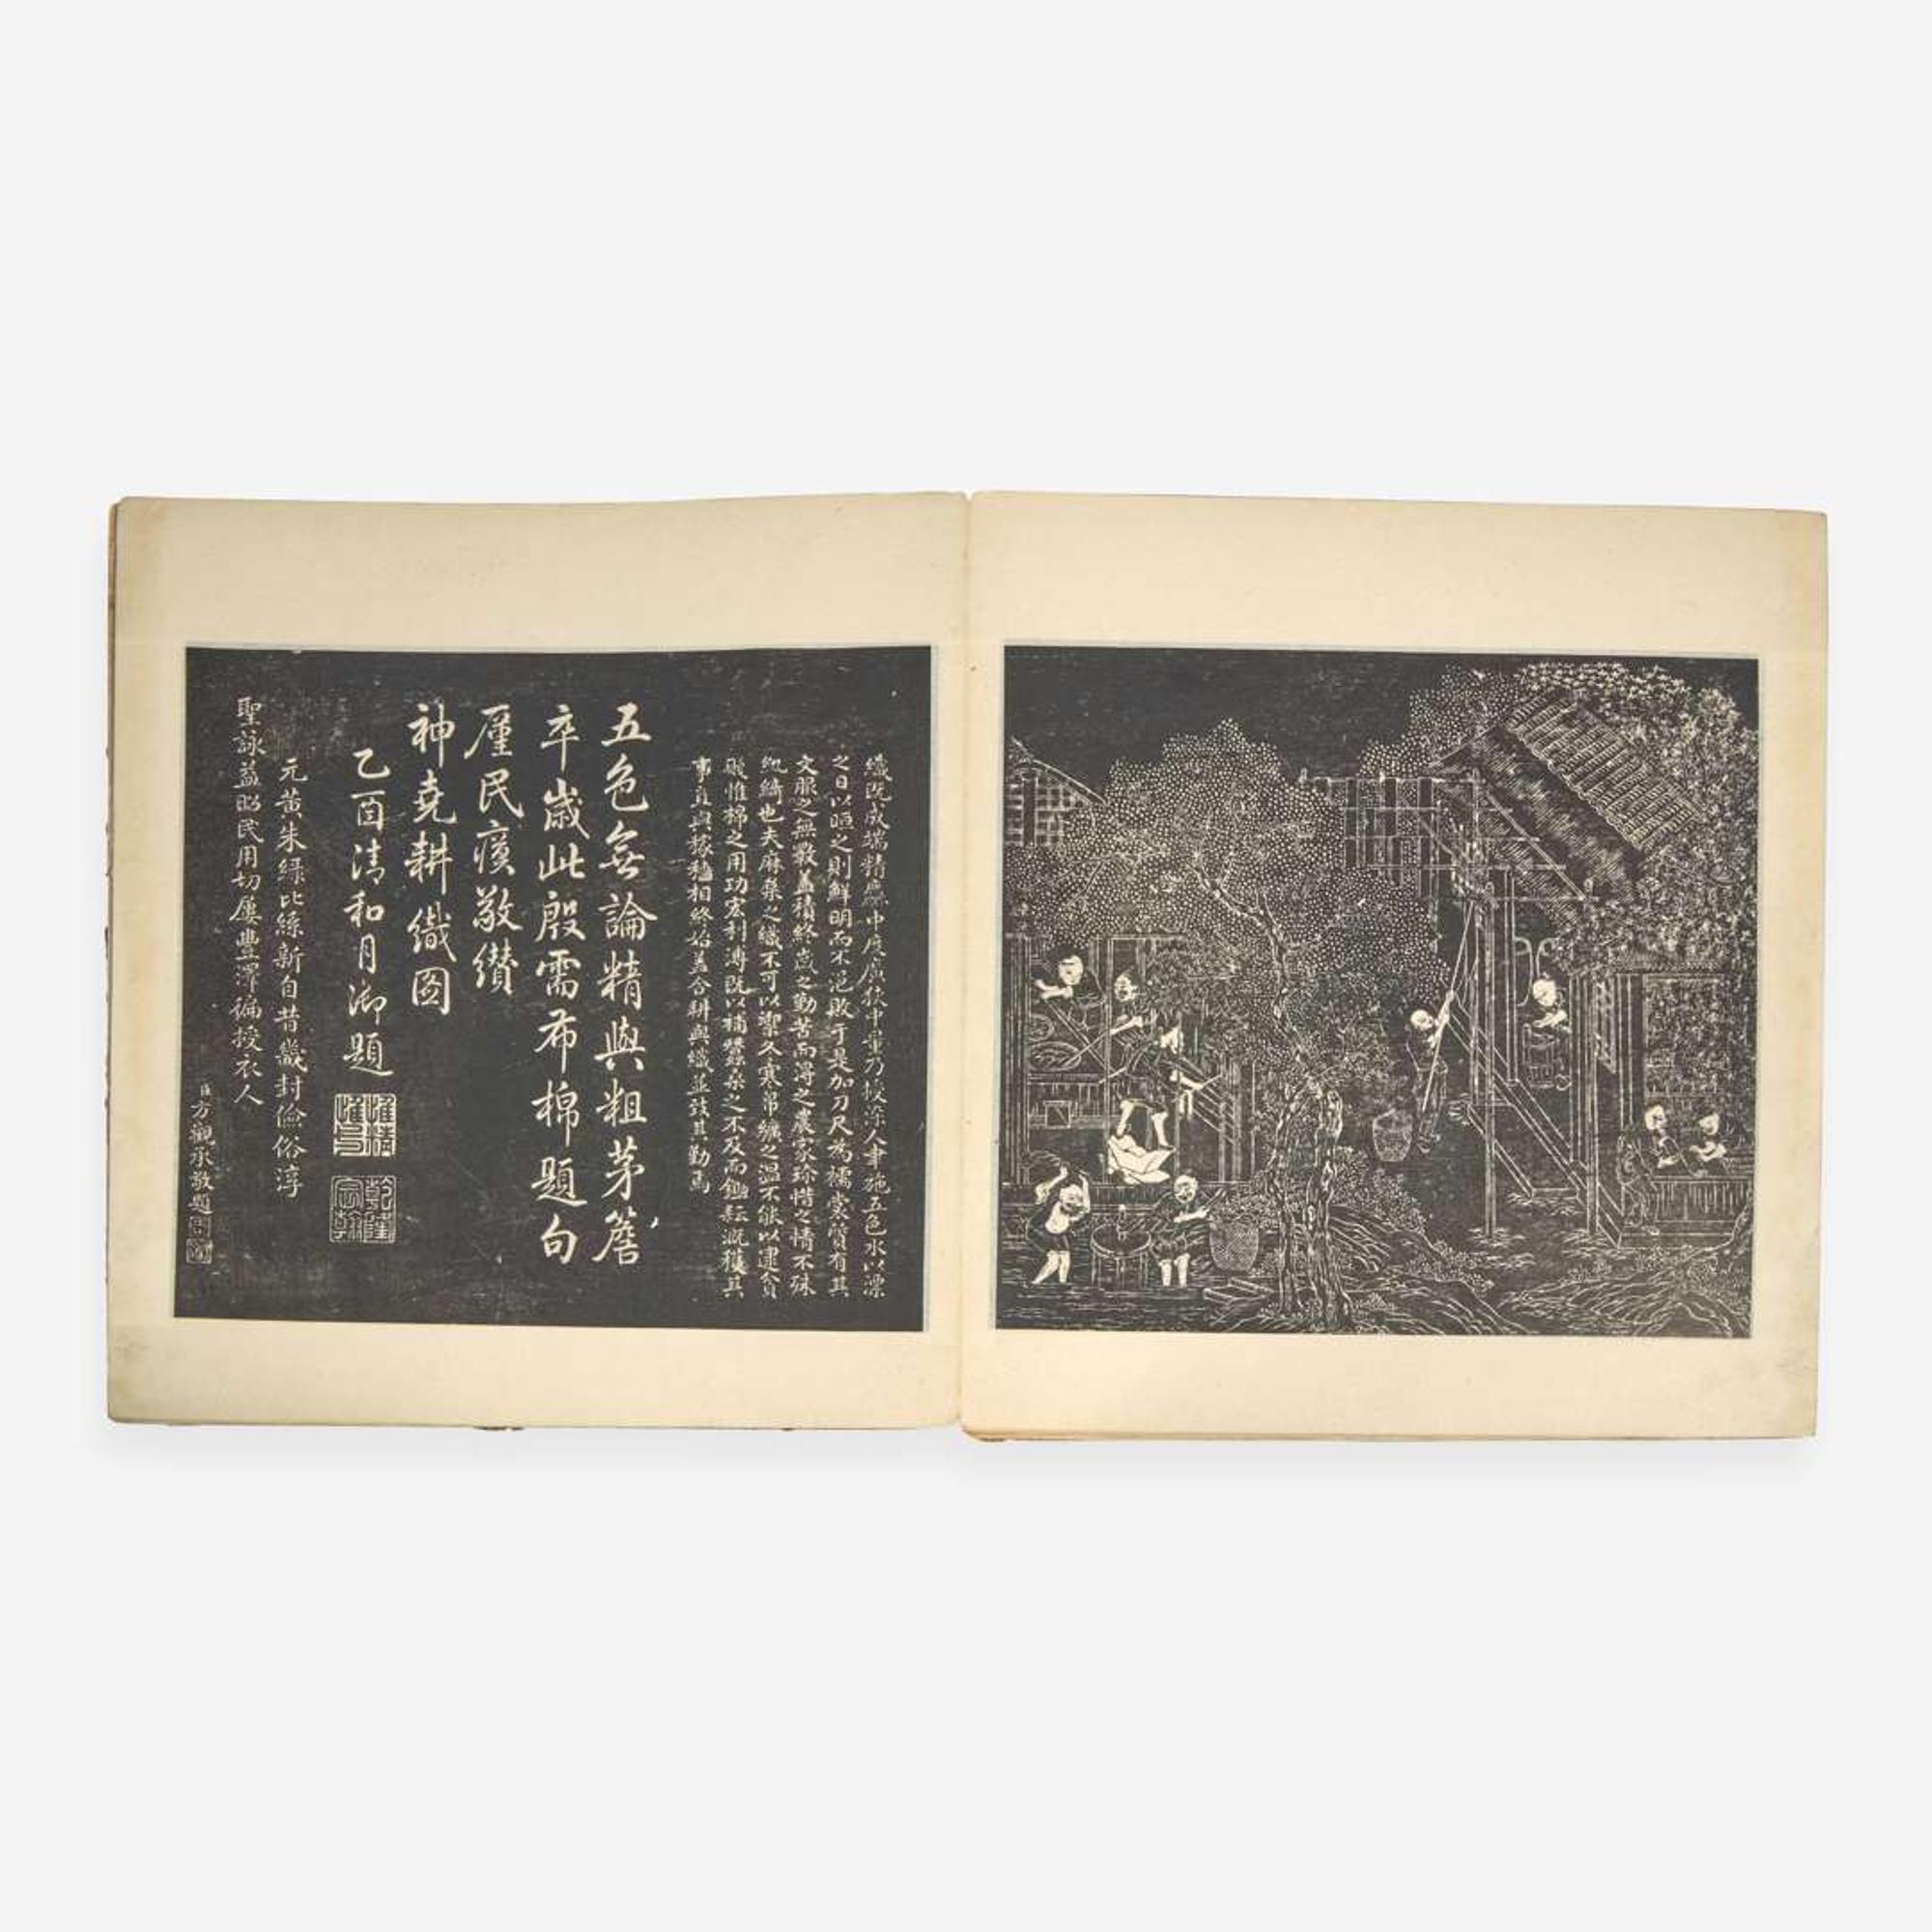 織既成端精麤中度廣狹中量乃授染人聿施五色水以漂
之日以晅之則鮮明而不浥敗于是加刀尺為襦裳質有其
文服之無斁蓋積終歲之勤苦而得之農家珍惜之情不殊
紈綺也夫麻枲之織不可以禦冬寒帛纊之溫不能以逮貧
賤惟棉之用功宏利溥既以補蠶桑之不及而鋤耘溉穫其
事直與稼穡相終始蓋合耕與織並致其勤焉
五色無論精與粗茅簷
卒歲此殷需布棉題句
廑民瘼敬纘
神堯耕織圖
乙酉清和月御題
惟精惟一
乾隆宸翰
元黃朱綠比絲新自昔畿封儉俗淳
聖詠益昭民用切屢豐澤徧授衣人
臣方觀承敬題